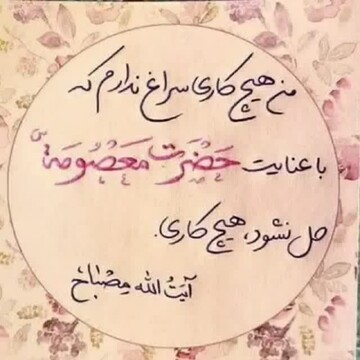 من هیچ کاری سراغ ندارم که
با عنایت حَضْرَت مَعَصْومَهٔ س
حل نشود، هیچ کاری.
آیَتُ الله مِصْبٰاحْ